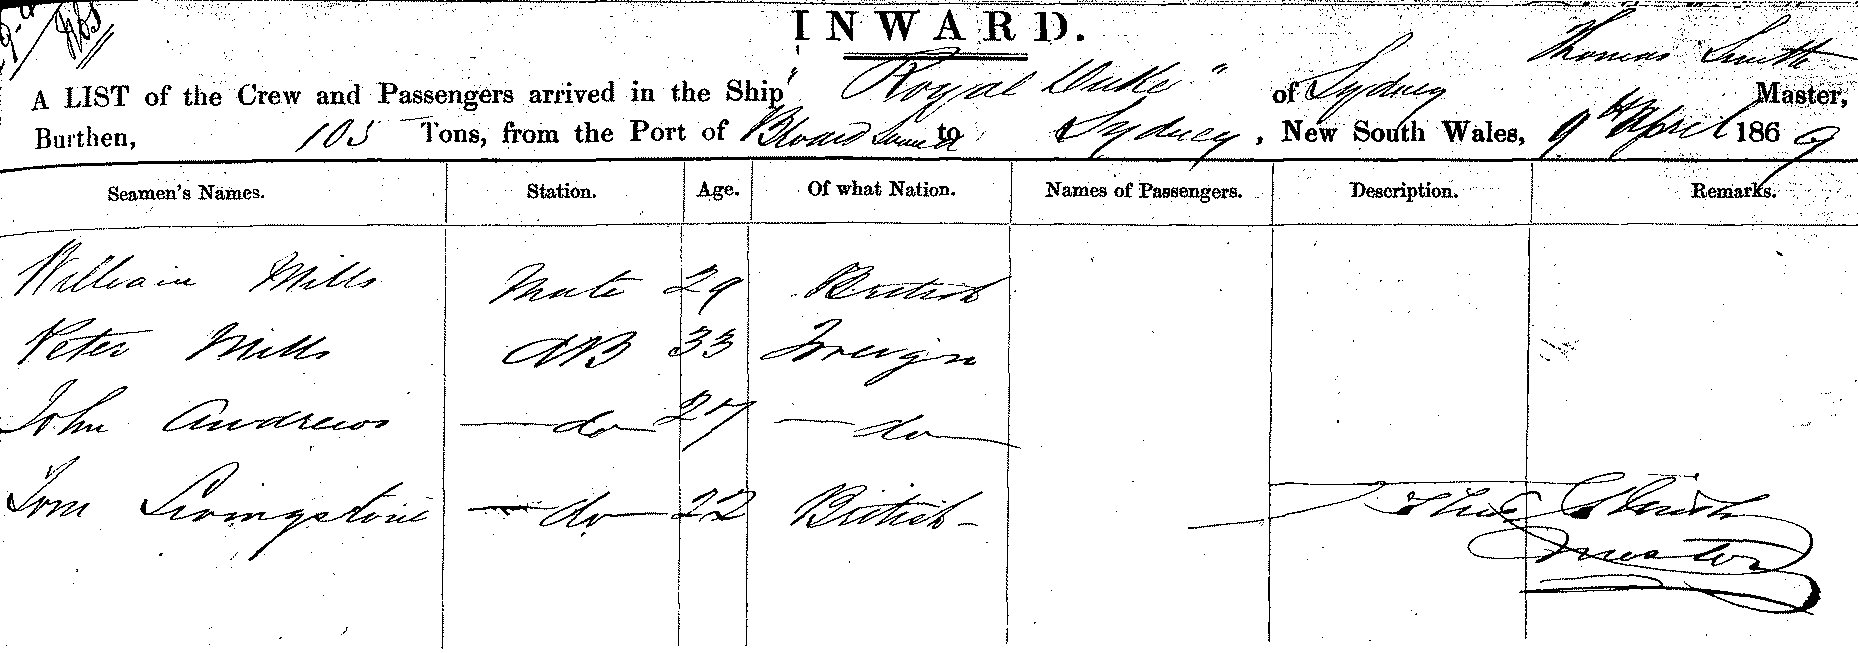 INWARD.
Thomas Smith
A LIST of the Crew and Passengers arrived in the Ship "Royal Duke" of Sydney Master,
Burthen, 105 Tons, from the Port of Broad Sound to Sydney, New South Wales, 9th April 1869
Seamen's Names. Station. Age. Of what Nation. Names of Passengers. Description. Remarks.
William Mills Mate 29 British
Peter Mills AB 33 Foreign
John Andrews do 27 do
Tom Livingstone do 22 British
Thos Smith
Master